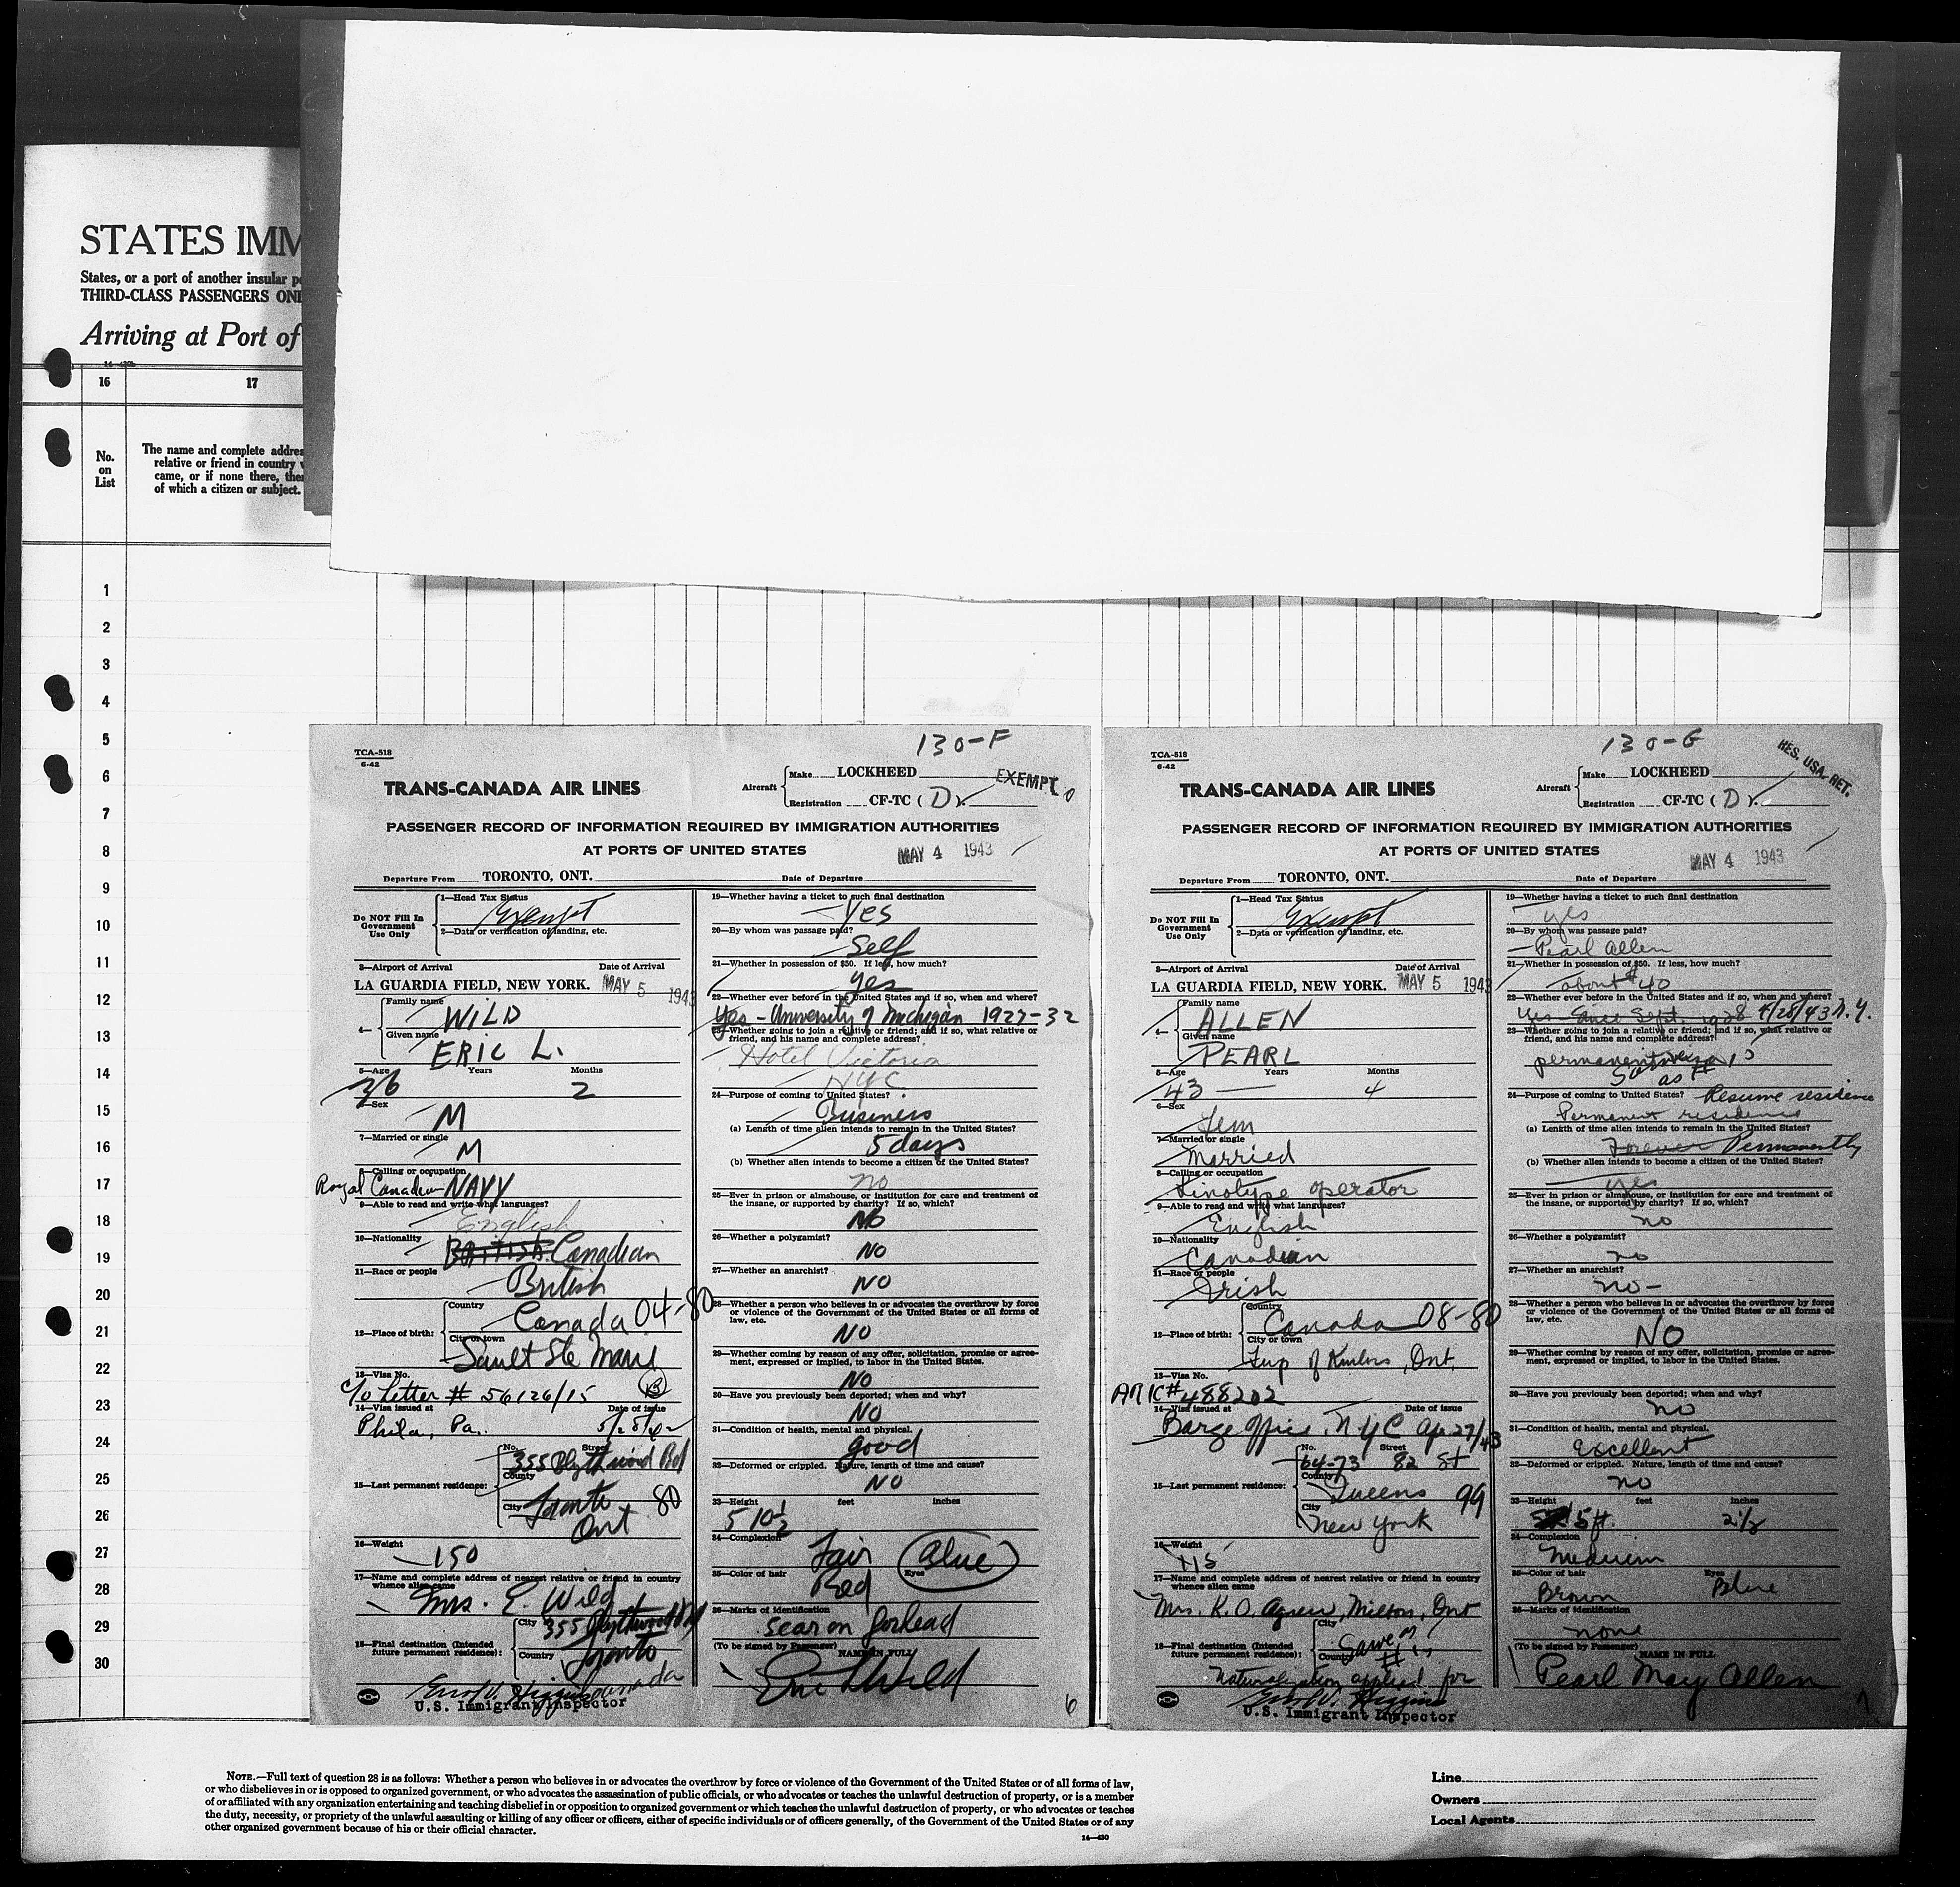 STATES IMM
States, or a port of another insular
THIRD-CLASS PASSENGERS ONL
Arriving at Port of
16 17
No.
on
List
The name and complete addres
relative or friend in country
came, or if none there, then
of which a citizen or subject.
1
2
3
4
5
6
7
8
9
10
11
12
13
14
15
16
17
18
19
20
21
22
23
24
25
26
27
28
29
30
130-F
TCA-518
6-42
TRANS-CANADA AIR LINES
Aircraft Make LOCKHEED
Registration CF-TC ( D ).
EXEMPT
PASSENGER RECORD OF INFORMATION REQUIRED BY IMMIGRATION AUTHORITIES
AT PORTS OF UNITED STATES
MAY 4 1943
Departure From TORONTO, ONT. Date of Departure
Do NOT Fill In
Government
Use Only
1—Head Tax Status
Exempt
2—Data or verification of landing, etc.
3—Airport of Arrival Date of Arrival
LA GUARDIA FIELD, NEW YORK. MAY 5 1943
4— Family name
WILD
Given name
ERIC L.
5—Age Years Months
36 2
6—Sex
M
7—Married or single
M
8—Calling or occupation
Royal Canadian NAVY
9—Able to read and write what languages?
English
10—Nationality
British Canadian
11—Race or people
British
12—Place of birth: Country
Canada 04-80
City or town
Sault Ste Marie
13—Visa No.
c/o Letter # 56126/15 B
14—Visa issued at Date of issue
Phila, Pa.
15—Last permanent residence:
No. Street
355 Blythwood Rd
County
City
Toronto 80
Ont
16—Weight
150
17—Name and complete address of nearest relative or friend in country
whence alien came
Mrs. E. Wild
18—Final destination (Intended
future permanent residence):
City
355 Blythwood Rd
Country
Toronto
Canada
U.S. Immigrant Inspector
19—Whether having a ticket to such final destination
Yes
20—By whom was passage paid?
Self
21—Whether in possession of $50. If less, how much?
Yes
22—Whether ever before in the United States and if so, when and where?
Yes - University of Michigan 1927-32
23—Whether going to join a relative or friend; and if so, what relative or
friend, and his name and complete address?
Hotel Victoria
NYC
24—Purpose of coming to United States?
Business
(a) Length of time alien intends to remain in the United States?
5 days
(b) Whether alien intends to become a citizen of the United States?
no
25—Ever in prison or almshouse, or institution for care and treatment of
the insane, or supported by charity? If so, which?
NO
26—Whether a polygamist?
NO
27—Whether an anarchist?
NO
28—Whether a person who believes in or advocates the overthrow by force
or violence of the Government of the United States or all forms of
law, etc.
NO
29—Whether coming by reason of any offer, solicitation, promise or agree-
ment, expressed or implied, to labor in the United States.
NO
30—Have you previously been deported; when and why?
NO
31—Condition of health, mental and physical.
good
32—Deformed or crippled. Nature, length of time and cause?
NO
33—Height feet inches
5 10½
34—Complexion
Fair Blue
35—Color of hair Eyes
Red
36—Marks of identification
scar on forhead
(To be signed by Passenger) NAME IN FULL
Eric L Wild
6
130-G
TCA-518
6-42
TRANS-CANADA AIR LINES
Aircraft Make LOCKHEED
Registration CF-TC ( D ).
RES. USA. RET.
PASSENGER RECORD OF INFORMATION REQUIRED BY IMMIGRATION AUTHORITIES
AT PORTS OF UNITED STATES
MAY 4 1943
Departure From TORONTO, ONT. Date of Departure
Do NOT Fill In
Government
Use Only
1—Head Tax Status
Exempt
2—Data or verification of landing, etc.
3—Airport of Arrival Date of Arrival
LA GUARDIA FIELD, NEW YORK. MAY 5 1943
4— Family name
ALLEN
Given name
PEARL
5—Age Years Months
43 4
6—Sex
Fem
7—Married or single
Married
8—Calling or occupation
Linotype operator
9—Able to read and write what languages?
English
10—Nationality
Canadian
11—Race or people
Irish
12—Place of birth: Country
Canada 08-80
City or town
Twp of , Ont.
13—Visa No.
AR IC# 488202
14—Visa issued at Date of issue
Barge Office, N Y C Ap. 27/43
15—Last permanent residence:
No. Street
64-73 82 St
County
Queens 99
City
New York
16—Weight
115
17—Name and complete address of nearest relative or friend in country
whence alien came
Mrs. K. O. Agnew, Milton, Ont
18—Final destination (Intended
future permanent residence):
City
Same as
Country
# 15
Naturalization applied for
U.S. Immigrant Inspector
19—Whether having a ticket to such final destination
yes
20—By whom was passage paid?
Pearl Allen
21—Whether in possession of $50. If less, how much?
about $40
22—Whether ever before in the United States and if so, when and where?
Yes - Since Sept. 1928 4/28/43 N.Y.
23—Whether going to join a relative or friend; and if so, what relative or
friend, and his name and complete address?
permanent
24—Purpose of coming to United States? Resume residence
Permanent residence
(a) Length of time alien intends to remain in the United States?
Forever Permanently
(b) Whether alien intends to become a citizen of the United States?
yes
25—Ever in prison or almshouse, or institution for care and treatment of
the insane, or supported by charity? If so, which?
no
26—Whether a polygamist?
no
27—Whether an anarchist?
no-
28—Whether a person who believes in or advocates the overthrow by force
or violence of the Government of the United States or all forms of
law, etc.
NO
29—Whether coming by reason of any offer, solicitation, promise or agree-
ment, expressed or implied, to labor in the United States.
30—Have you previously been deported; when and why?
no
31—Condition of health, mental and physical.
Excellent
32—Deformed or crippled. Nature, length of time and cause?
no
33—Height feet inches
5 ft. 2½
34—Complexion
Medium
35—Color of hair Eyes
Brown Blue
36—Marks of identification
none
(To be signed by Passenger) NAME IN FULL
Pearl May Allen
7
NOTE.—Full text of question 28 is as follows: Whether a person who believes in or advocates the overthrow by force or violence of the Government of the United States or of all forms of law,
or who disbelieves in or is opposed to organized government, or who advocates the assassination of public officials, or who advocates or teaches the unlawful destruction of property, or is a member
of or affiliated with any organization entertaining and teaching disbelief in or opposition to organized government or which teaches the unlawful destruction of property, or who advocates or teaches
the duty, necessity, or propriety of the unlawful assaulting or killing of any officer or officers, either of specific individuals or of officers generally, of the Government of the United States or of any
other organized government because of his or their official character.
14—430
Line
Owners
Local Agents